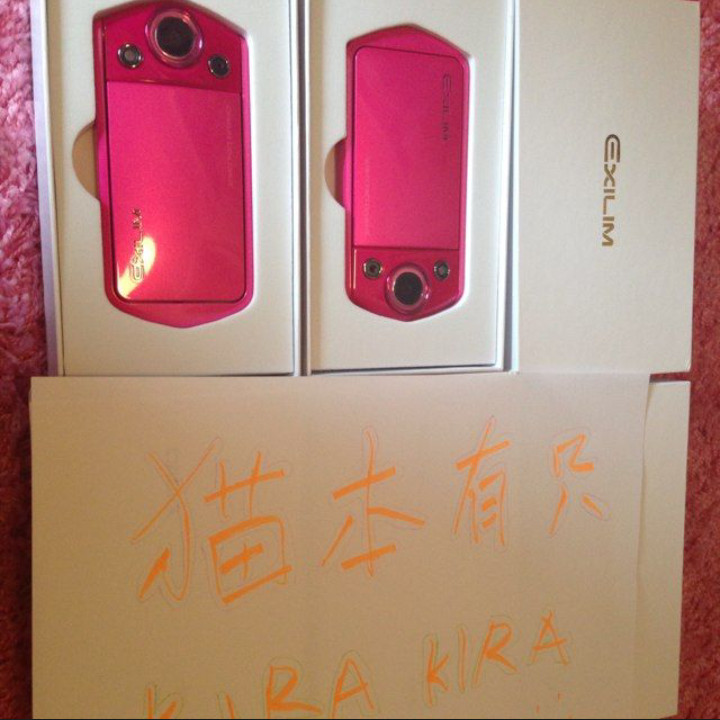 EXILIM
EXILIM
EXILIM
猫本有只
KIRA KIRA